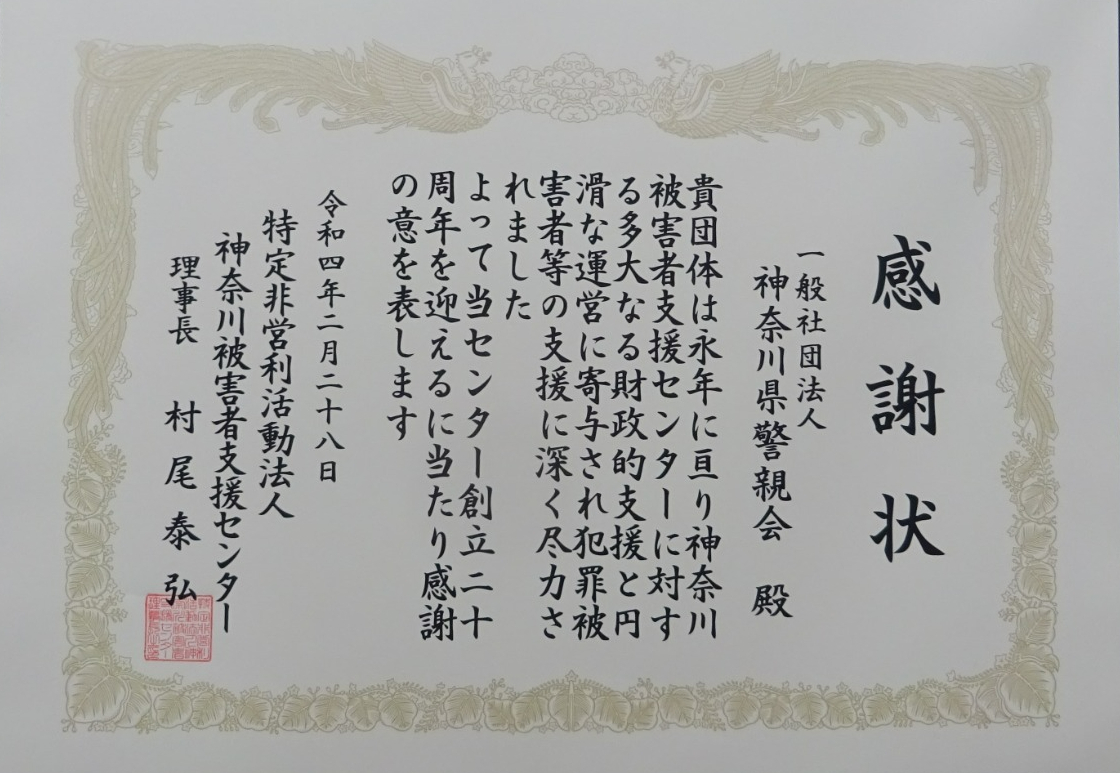 感謝状
一般社団法人
神奈川県警親会 殿
貴団体は永年に亘り神奈川
被害者支援センターに対す
る多大なる財政的支援と円
滑な運営に寄与され犯罪被
害者等の支援に深く尽力さ
れました
よって当センター創立二十
周年を迎えるに当たり感謝
の意を表します
令和四年二月二十八日
特定非営利活動法人
神奈川被害者支援センター
理事長 村尾泰弘